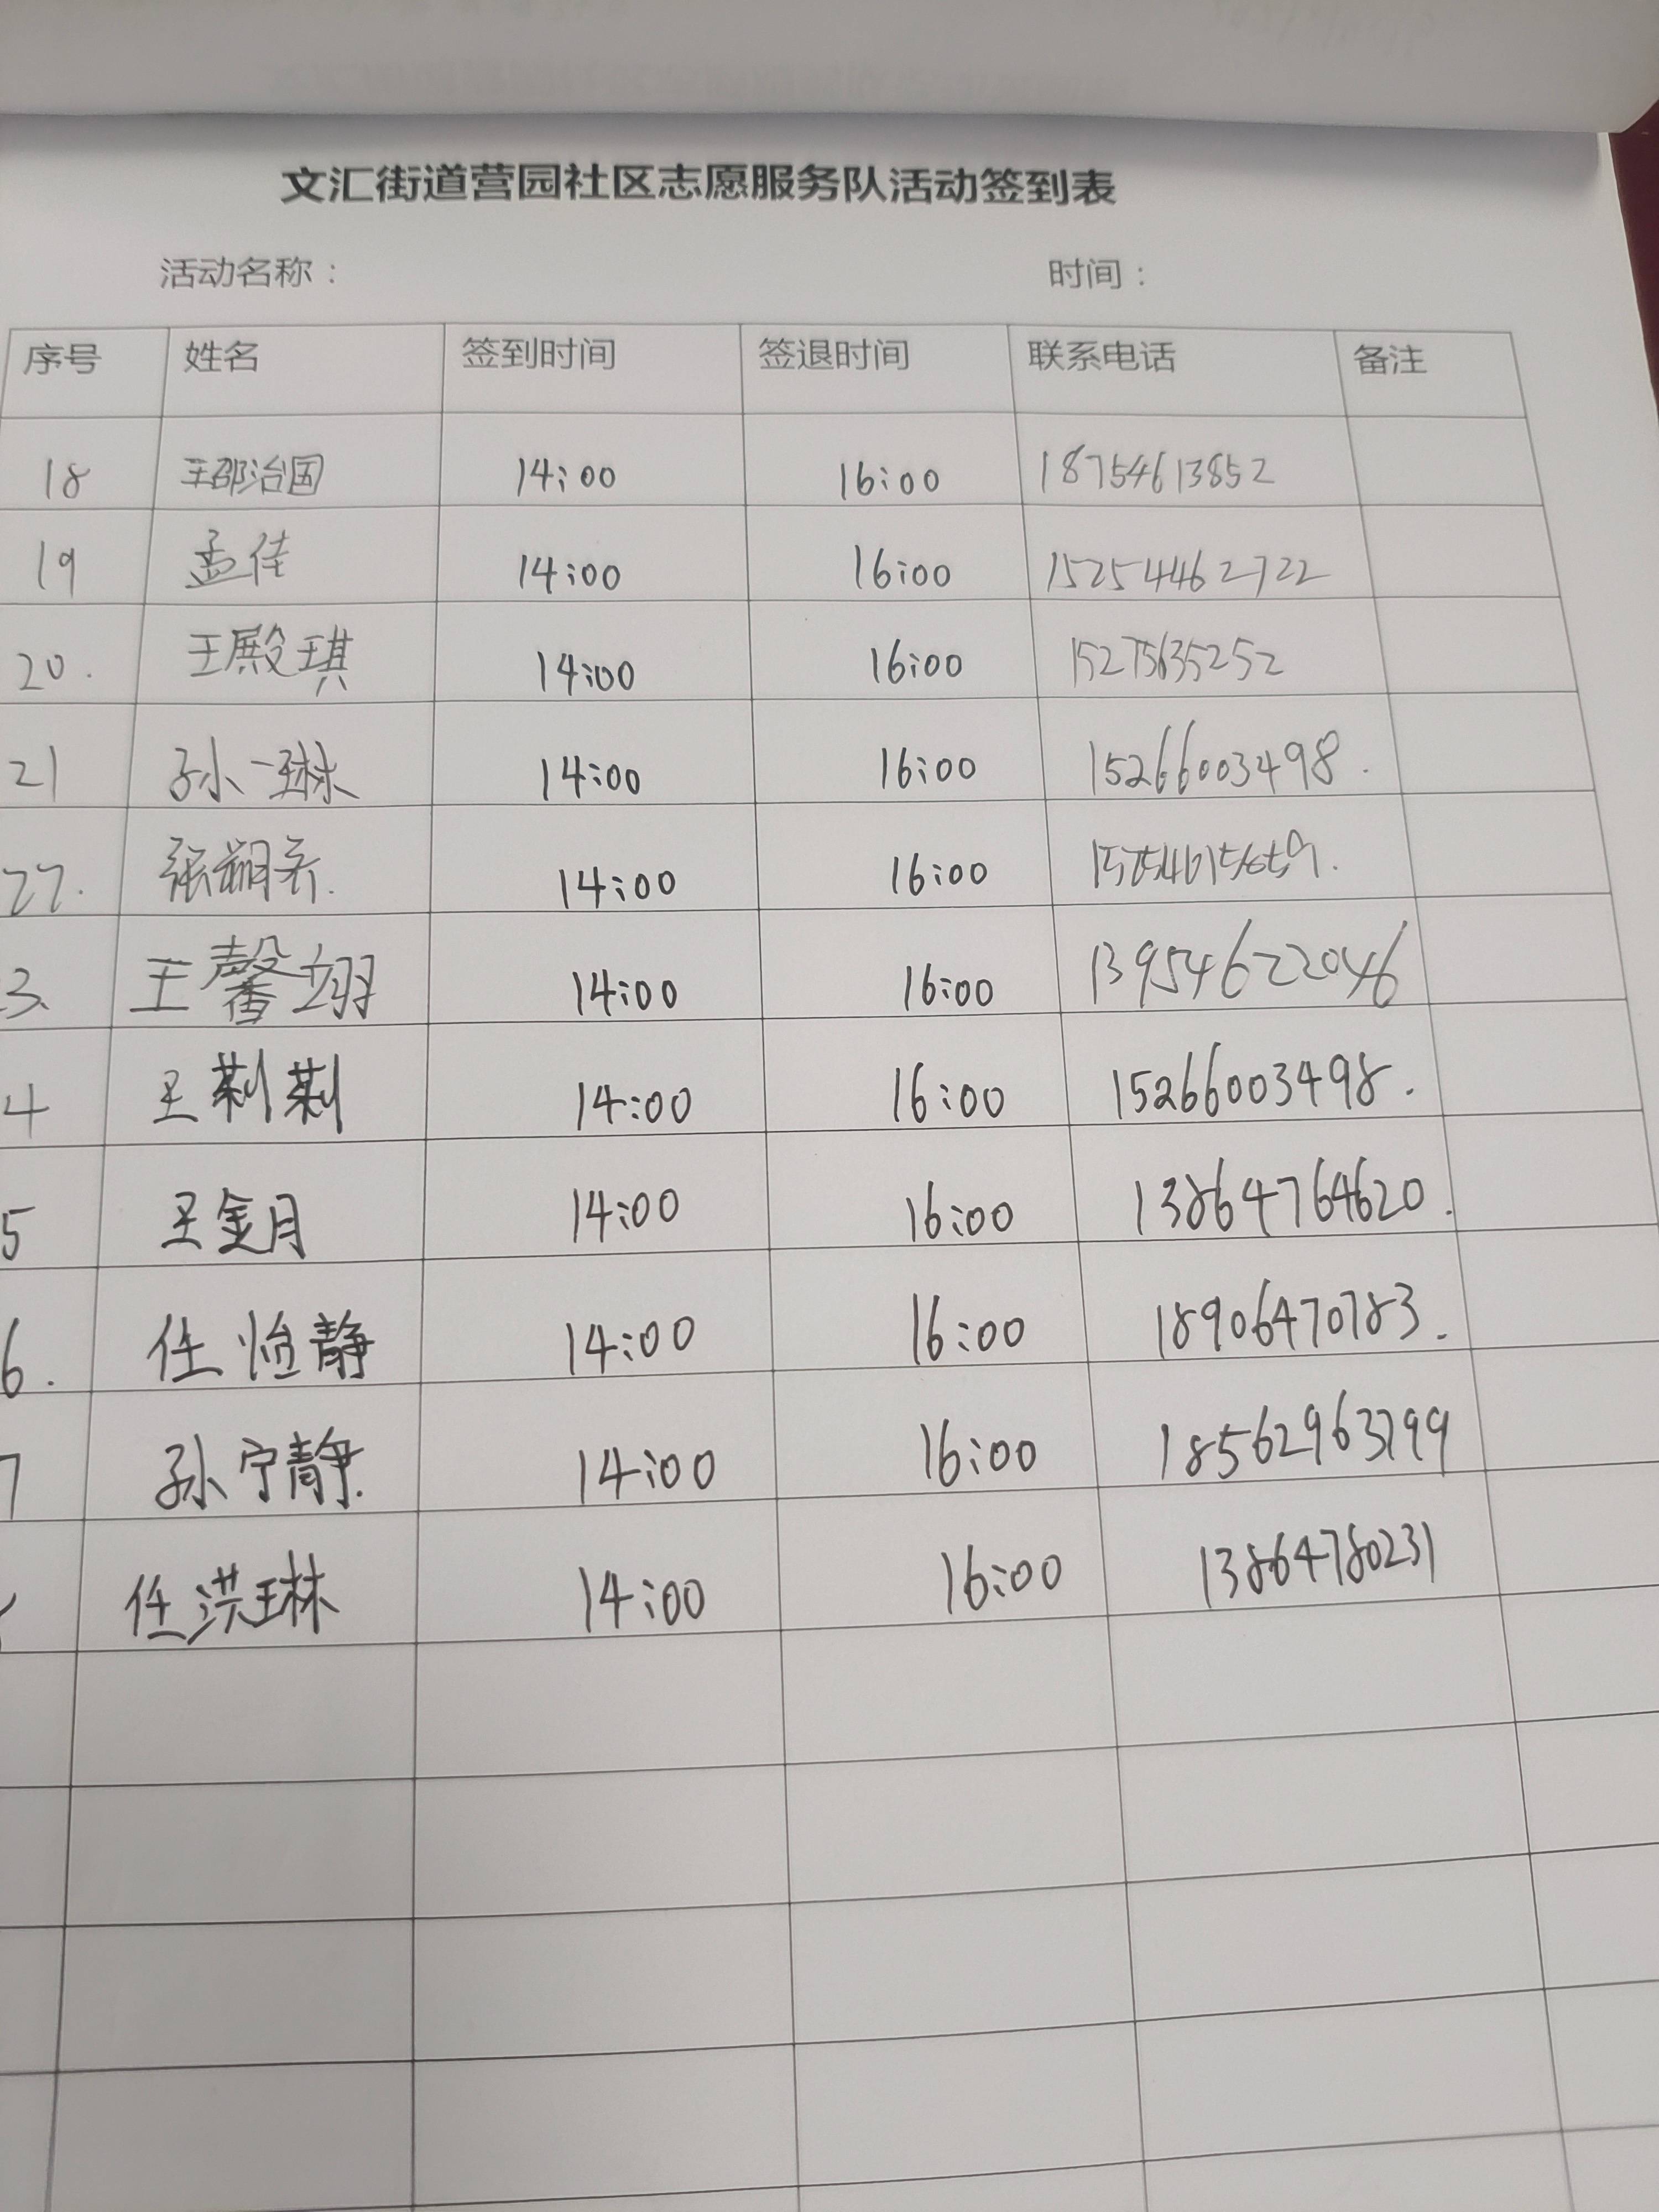 文汇街道营园社区志愿服务队活动签到表
活动名称： 时间：
序号 姓名 签到时间 签退时间 联系电话 备注
18 王邵治国 14:00 16:00 18754613852
19 孟佳 14:00 16:00 15254462722
20. 王殿琪 14:00 16:00 15275635252
21 孙一琳 14:00 16:00 15266003498.
22. 14:00 16:00
3. 王馨翊 14:00 16:00 13954622046
4 王莉莉 14:00 16:00 15266003498.
5 王金月 14:00 16:00 13864764620.
6. 任怡静 14:00 16:00 18906470783.
7 孙宁静. 14:00 16:00 18562963799
任洪琳 14:00 16:00 13864780231